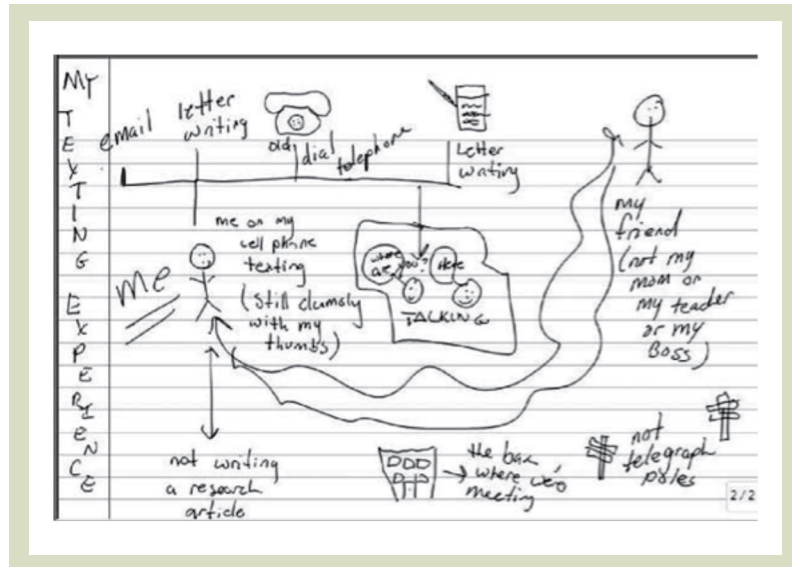 MY TEXTING EXPERIENCE
email
letter
writing
old
dial
telephone
Letter
writing
me on my
cell phone
texting
(still clumsly
with my
thumbs)
me
where
are you?
Here
TALKING
my
friend
(not my
mom or
my teacher
or my
Boss)
not writing
a research
article
the bar
where we's
meeting
not
telegraph
poles
2/2